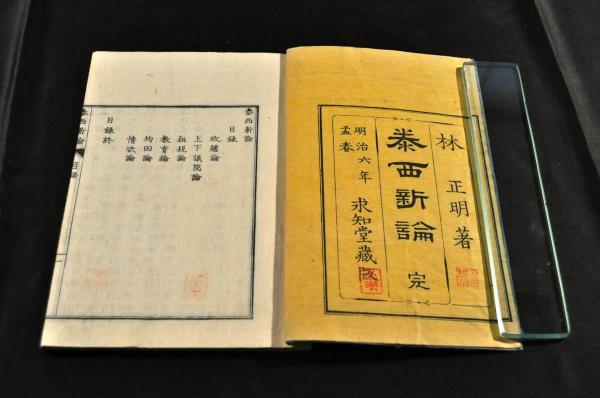 林 正明著
泰西新論 完
明治六年
孟春
求知堂藏
泰西新論
目錄
政體論
上下議院論
租税論
教育論
均田論
情欲論
目錄終
泰西新論 目錄